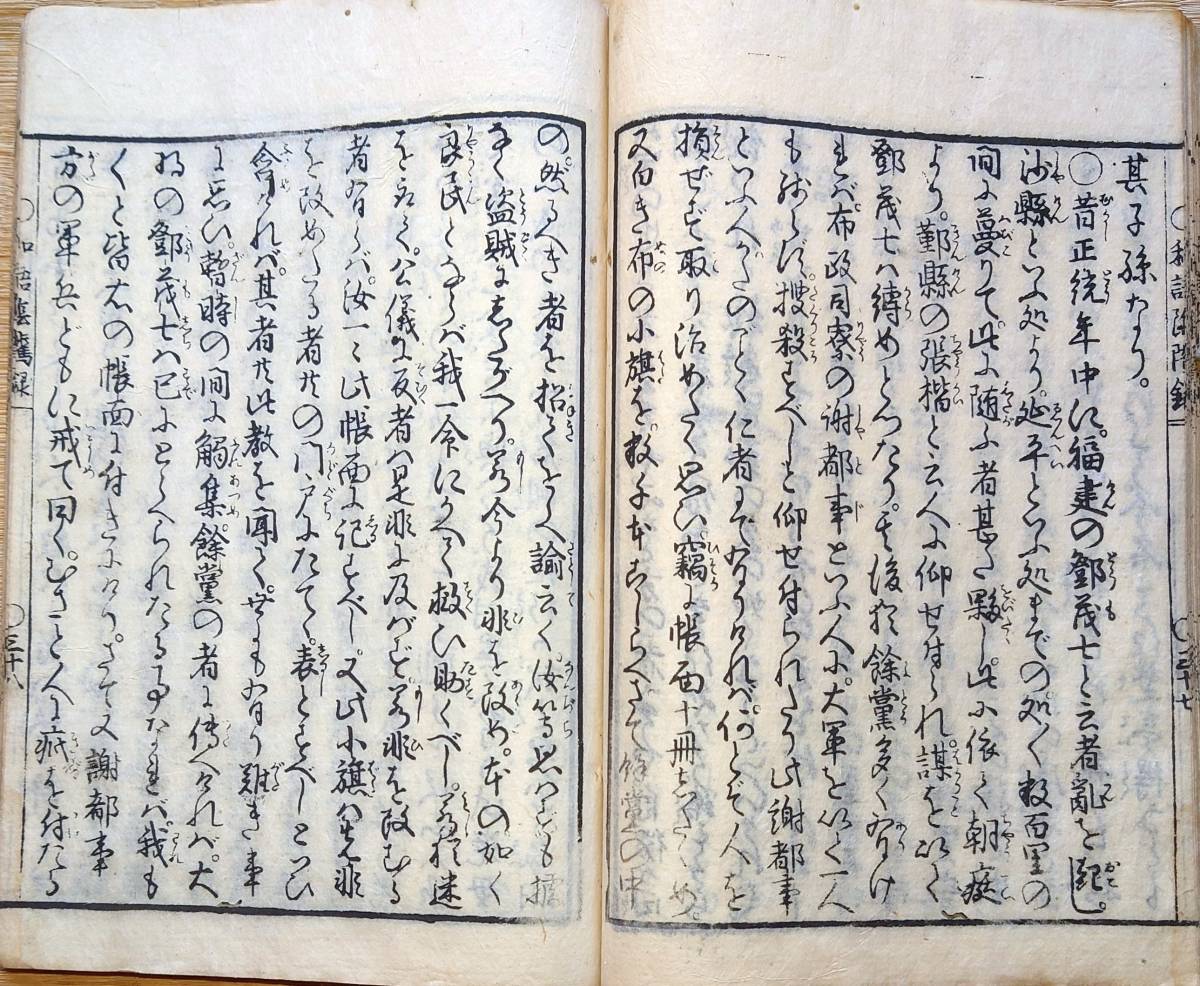 其子孫なり。
〇昔正統年中に。福建の鄧茂七と云者亂を起し。
沙縣といふ処より。延平といふ処までの処〱数百里の
間に蔓りて。此に随ふ者甚だ夥し。此に依て朝廷
より。鄞縣の張楷と云人に仰せ付られ。謀を以て
鄧茂七ハ縛めとつたり。其後猶餘黨多く有け
れバ。布政司寮の謝都事といふ人に。大軍を以て一人
も残らず。捜殺すべしと仰せ付られたり。此謝都事
といふ人。かたのごとく仁者にて有りけれバ。何とぞ人を
損ぜず取り治めたく思い。竊に帳面十冊したゝめ。
又白き布の小旗を。数千本こしらへさて餘黨の中
の。然るべき者を招てをしへ諭云く。汝等思ハずも
なく盗賊にしたがへり。若今より非を改め。本の如く
良民とならバ。我一命にかへて救ひ助くべし。若猶迷
を取て。公儀に反者ハ是非に及バず。若非を改むる
者有らバ。汝一〻此帳面に記すべし。又此小旗ハ先非
を改めたる者共の門戸にたてて。表とすべしといひ
含けれバ。其者共此教を聞て。世にも有り難き事
に思い。暫時の間に觸集。餘黨の者に傳へけれバ。大
将の鄧茂七ハ已にとらへられたる事なれバ。我も
〱と皆右の帳面に付きにけり。さて又謝都事
方の軍兵どもに戒て曰く。むさと人に疵を付たる
〇三十七
〇三十八